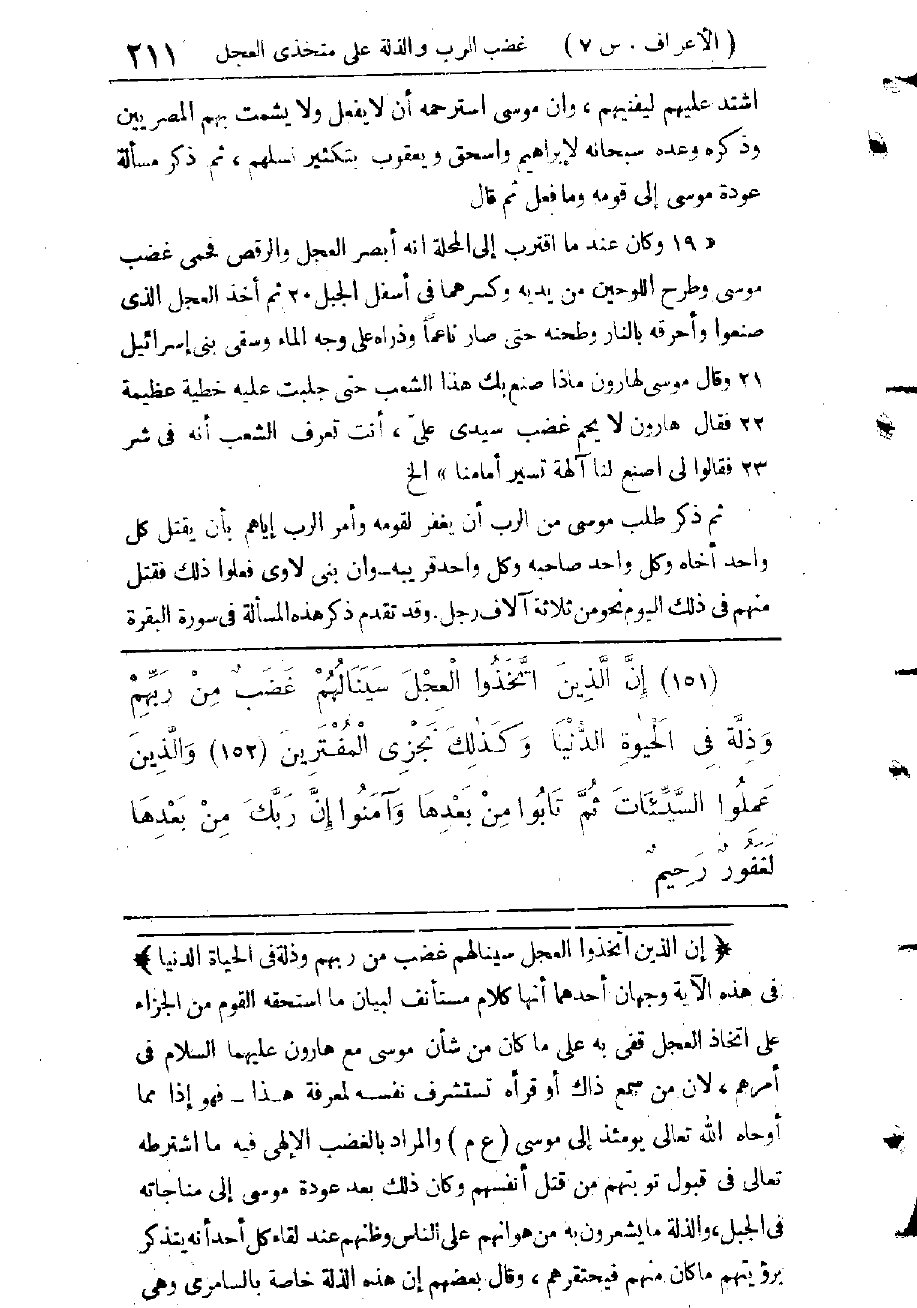 (الأعراف . س ٧) غضب الرب والذلة على متخذى العجل ٢١١
اشتد عليهم ليفنيهم ، وان موسى استرحمه أن لا يفعل ولا يشمت بهم المصريين
وذكره وعده سبحانه لإبراهيم واسحق ويعقوب بتكثير نسلهم ، ثم ذكر مسألة
عودة موسى إلى قومه وما فعل ثم قال
« ١٩ وكان عند ما اقترب إلى المحلة انه أبصر العجل والرقص فحمى غضب
موسى وطرح اللوحين من يديه وكسرهما فى أسفل الجبل ٢٠ ثم أخذ العجل الذى
صنعوا وأحرقه بالنار وطحنه حتى صار ناعماً وذراه على وجه الماء وسقى بنى إسرائيل
٢١ وقال موسى لهارون ماذا صنع بك هذا الشعب حتى جلبت عليه خطية عظيمة
٢٢ فقال هارون لا يحم غضب سيدى علىّ ، أنت تعرف الشعب أنه فى شر
٢٣ فقالوا لى اصنع لنا آلهة تسير أمامنا » الخ
ثم ذكر طلب موسى من الرب أن يغفر لقومه وأمر الرب إياهم بأن يقتل كل
واحد أخاه وكل واحد صاحبه وكل واحد قريبه ـ وان بنى لاوى فعلوا ذلك فقتل
منهم فى ذلك اليوم نحو من ثلاثة آلاف رجل . وقد تقدم ذكر هذه المسألة فى سورة البقرة
(١٥١) إِنَّ الَّذِينَ اتَّخَذُوا الْعِجْلَ سَيَنَالُهُمْ غَضَبٌ مِنْ رَبِّهِمْ
وَذِلَّةٌ فِى الْحَيٰوةِ الدُّنْيَا وَكَذٰلِكَ نَجْزِى الْمُفْتَرِينَ (١٥٢) وَالَّذِينَ
عَمِلُوا السَّيِّئَاتَ ثُمَّ تَابُوا مِنْ بَعْدِهَا وَآمَنُوا إِنَّ رَبَّكَ مِنْ بَعْدِهَا
لَغَفُورٌ رَحِيمٌ
﴿ إن الذين اتخذوا العجل سينالهم غضب من ربهم وذلة فى الحياة الدنيا ﴾
فى هذه الآية وجهان أحدهما أنها كلام مستأنف لبيان ما استحقه القوم من الجزاء
على اتخاذ العجل قفى به على ما كان من شأن موسى مع هارون عليهما السلام فى
أمرهم ، لان من سمع ذاك أو قرأه تستشرف نفسه لمعرفة هـذا ـ فهو إذا مما
أوحاه الله تعالى يومئذ إلى موسى (ع م) والمراد بالغضب الإلهى فيه ما اشترطه
تعالى فى قبول توبتهم من قتل أنفسهم وكان ذلك بعد عودة موسى إلى مناجاته
فى الجبل ، والذلة ما يشعرون به من هوانهم على الناس وظنهم عند لقاء كل أحد أنه يتذكر
برؤيتهم ما كان منهم فيحتقرهم ، وقال بعضهم إن هذه الذلة خاصة بالسامرى وهى